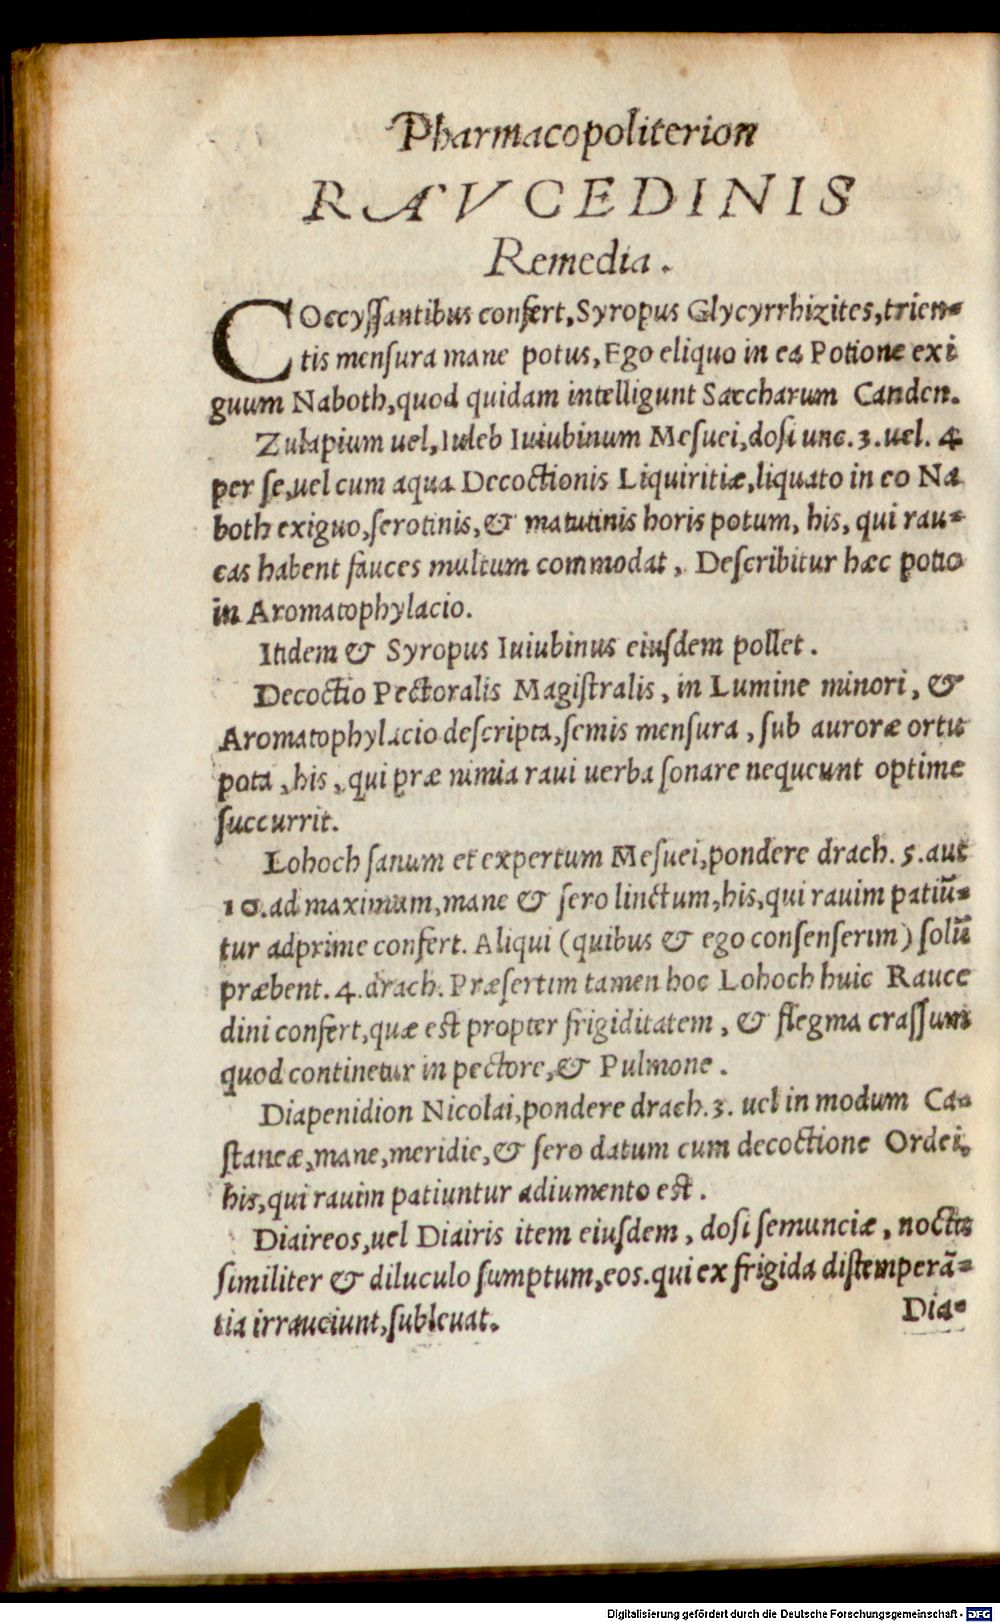 Pharmacopoliterion
RAVCEDINIS
Remedia.
COccyſſantibus confert, Syropus Glycyrrhizites, trien-
tis menſura mane potus, Ego eliquo in ea Potione exi
guum Naboth, quod quidam intelligunt Saccharum Canden.
Zulapium uel, Iuleb Iuiubinum Meſuei, doſi unc. 3. uel. 4
per ſe, uel cum aqua Decoctionis Liquiritiæ, liquato in eo Na
both exiguo, ſerotinis, & matutinis horis potum, his, qui rau-
cas habent fauces multum commodat, Deſcribitur hæc potio
in Aromatophylacio.
Itidem & Syropus Iuiubinus eiuſdem pollet.
Decoctio Pectoralis Magiſtralis, in Lumine minori, &
Aromatophylacio deſcripta, ſemis menſura, ſub auroræ ortu
pota, his, qui præ nimia raui uerba ſonare nequeunt optime
ſuccurrit.
Lohoch ſanum et expertum Meſuei, pondere drach. 5. aut
10. ad maximum, mane & ſero linctum, his, qui rauim patiū-
tur adprime confert. Aliqui (quibus & ego conſenſerim) ſolū
præbent. 4. drach. Præſertim tamen hoc Lohoch huic Rauce
dini confert, quæ est propter frigiditatem, & flegma craſſum
quod continetur in pectore, & Pulmone.
Diapenidion Nicolai, pondere drach. 3. uel in modum Ca-
ſtaneæ, mane, meridie, & ſero datum cum decoctione Ordei,
his, qui rauim patiuntur adiumento est.
Diaireos, uel Diairis item eiuſdem, doſi ſemunciæ, noctu
ſimiliter & diluculo ſumptum, eos. qui ex frigida diſtemperā-
tia irrauciunt, ſubleuat.
Dia-
Digitalisierung gefördert durch die Deutsche Forschungsgemeinschaft - DFG